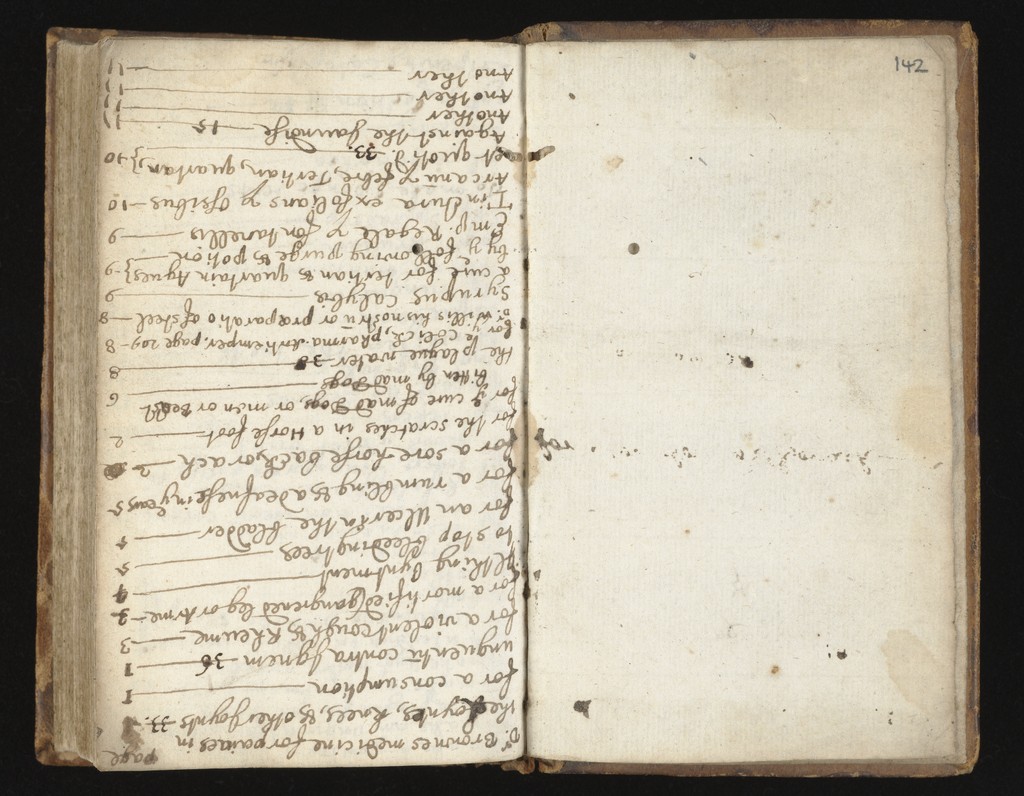 page
Dr. Brownes medicine for paines in
the Joyntes, knees, & other Joynts 33.
for a consumption 1
unguentū contra Ignem 36 1
for a violent cough & Rheume 3
for a mortified gangrened leg or Arme 3
Itching Oyntment 4
to stop bleeding trees 5
for an Ulcer in the bladder 5
for a rumbling & a deafnesse in ye Ears 5
for a sore horse back, or ach 2
for the scratches in a Horse foot 2
for ye cure of mad Dogs, or man or Beast
bitten by mad Dogs 6
the plague water 38 8
for ye colick, pharma. page 209 8
Dr Willis his nostrū or præparatio of steel 8
Syrupus Calybis 9
a cure for tertian & quartain Agues} 9
by ye following purge & potion
Emp. Regale 9
Tinctura ossibus 10
Arcanū febre, Tertian, quartan} 10
et quoti: 33.
Against the Jaundise 15 11
Another 11
Another 11
Another 11
142